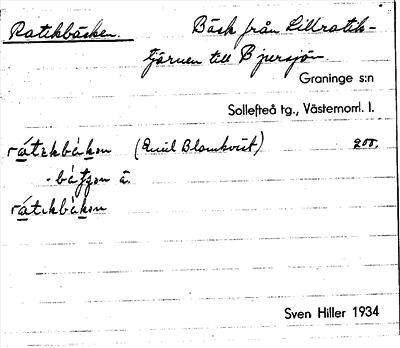 Ratikbäcken. Bäck från Lillratik-
tjärnen till Bjersjön.
Graninge s:n
Sollefteå tg., Västernorrl. l.
rátikbàkən (Emil Blomkvist) 200.
- bàtȷən ä.
rátikbàkən
Sven Hiller 1934